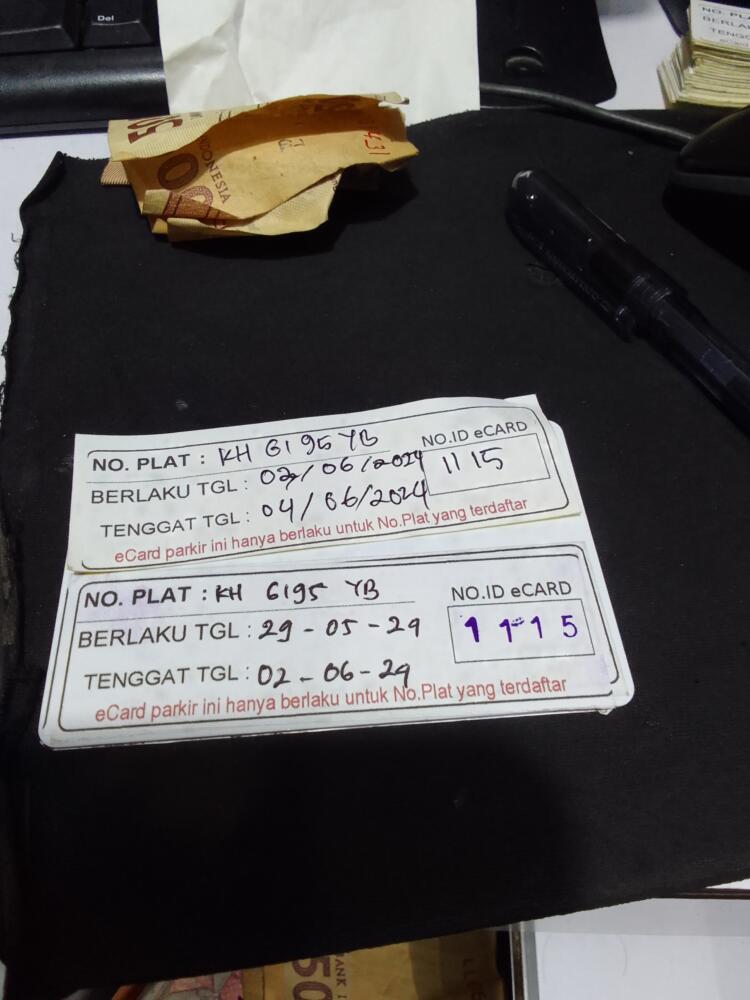 Del
NO. PL
BERLA
TENGG
500
INDONESIA
431
NO. PLAT : KH 6195 YB
NO.ID eCARD
BERLAKU TGL : 02/06/2024
1115
TENGGAT TGL : 04/06/2024
eCard parkir ini hanya berlaku untuk No.Plat yang terdaftar
NO. PLAT : KH 6195 YB
NO.ID eCARD
BERLAKU TGL : 29-05-24
1115
TENGGAT TGL : 02-06-24
eCard parkir ini hanya berlaku untuk No.Plat yang terdaftar
50
BANK I